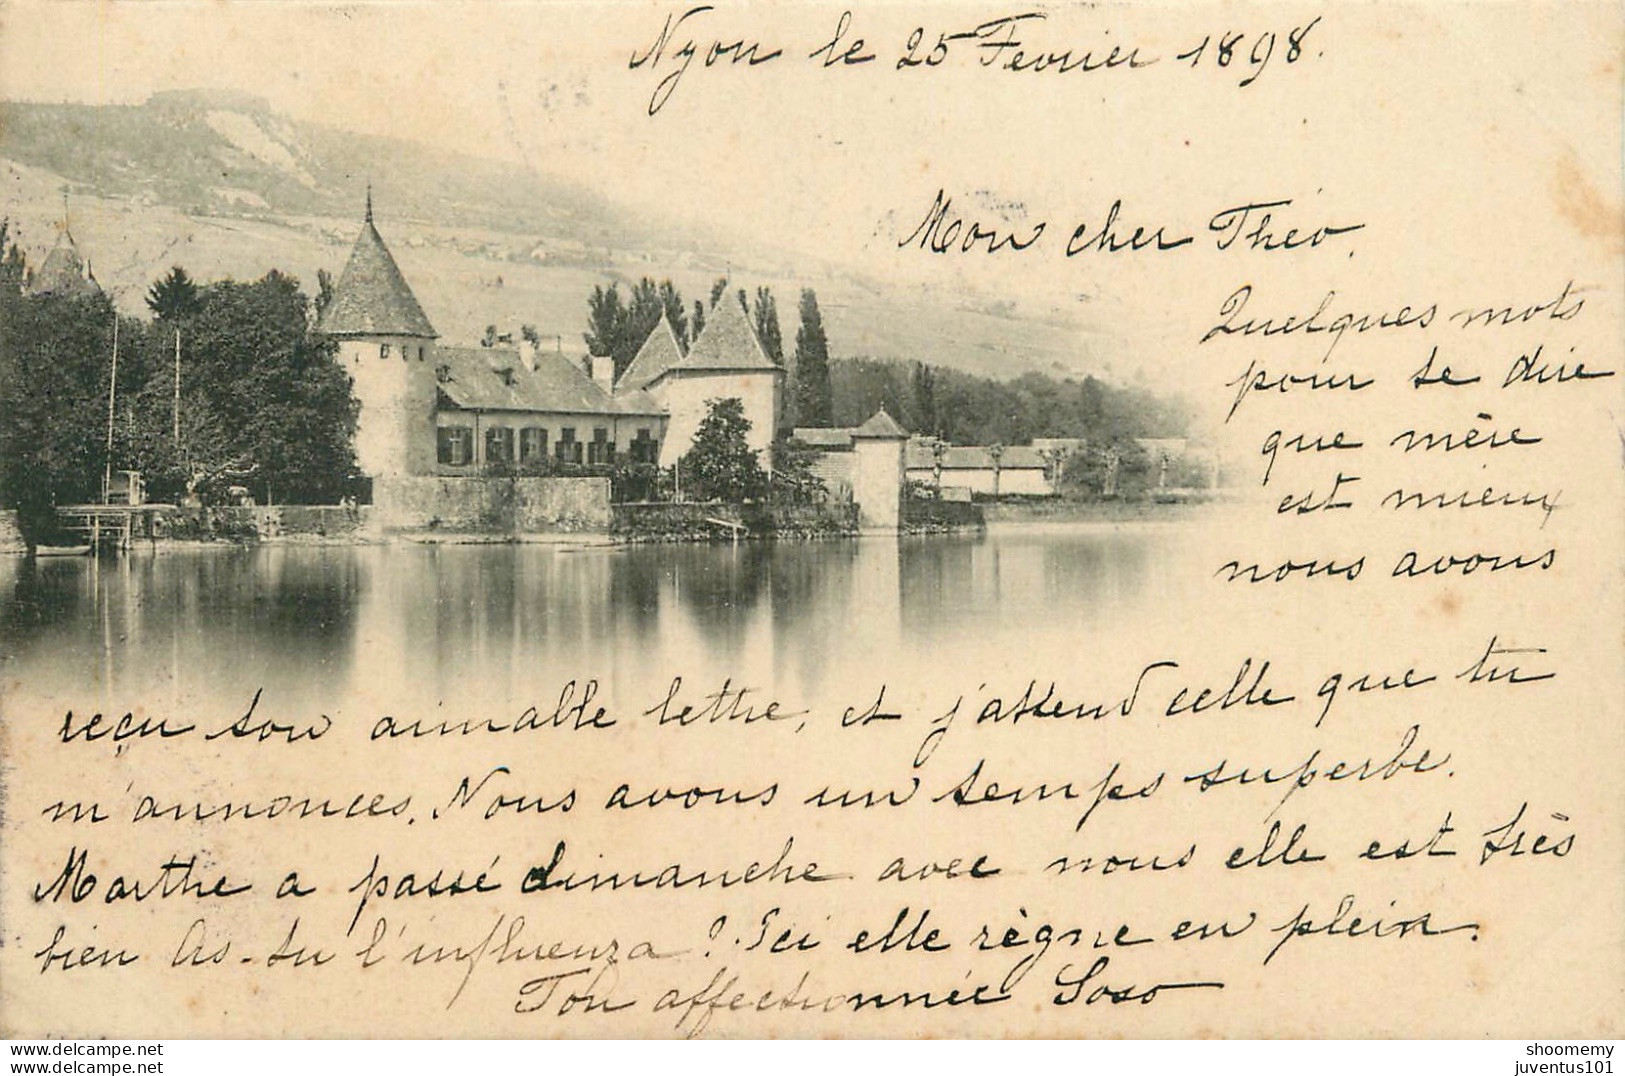 Nyon le 25 Fevrier 1898.
Mon cher Théo,
Quelques mots
pour te dire
que mère
est mieux
nous avons
reçu ton aimable lettre, et j'attend celle que tu
m'annonces. Nous avons un temps superbe.
Marthe a passé dimanche avec nous elle est très
bien As-tu l'influenza? Ici elle règne en plein.
Ton affectionnée Soso
shoomemy
juventus101